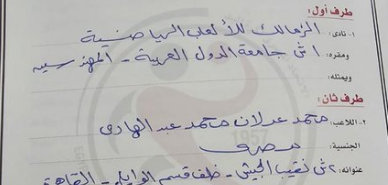 طرف أول:
١. نادى: الزمالك للألعاب الرياضية
ومقره: ١ش جامعة الدول العربية - المهندسين
ويمثله:
طرف ثان:
٢. اللاعب: محمد عدلان محمد عبد الهادى
الجنسية: مصرى
عنوانه: ٢ش نقيب الجيش - خلف قسم الوايلى - القاهرة